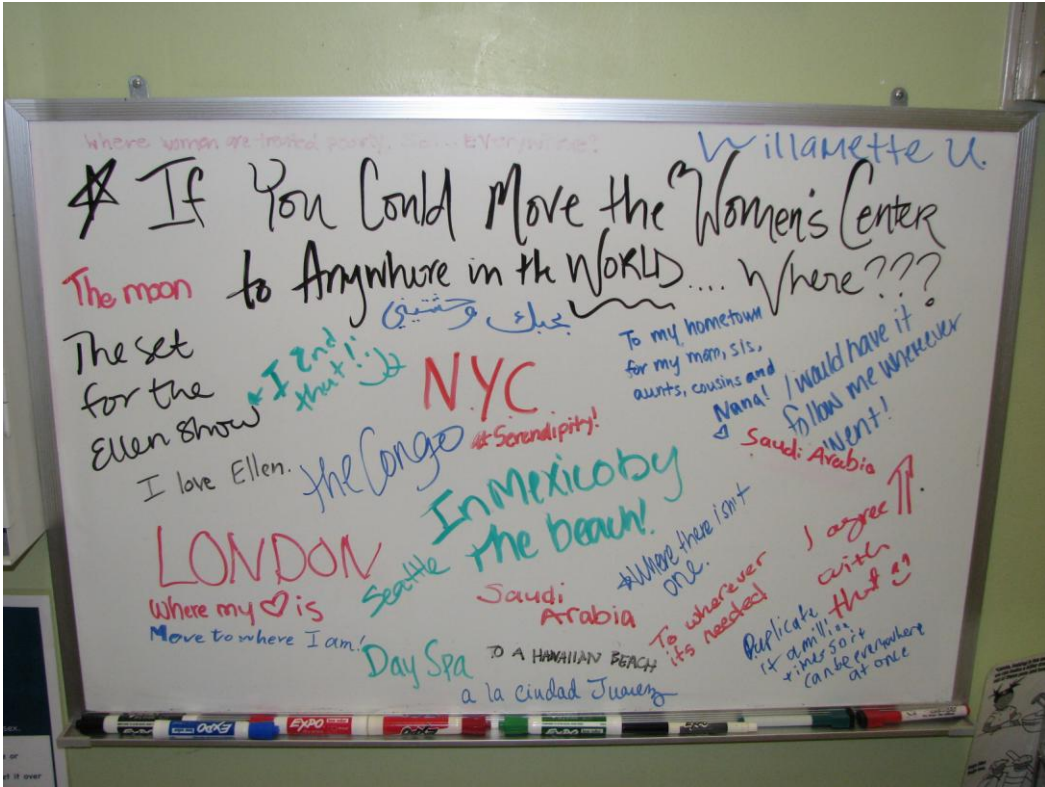 Where women are treated poorly, so... EVerywhere?
Willamette U.
☆ If You Could Move the Women's Center
to Anywhere in the WORLD.... Where???
The moon
بحبك وحشتيني
The set
for the
Ellen Show
* I 2nd
that! :)
I love Ellen.
NYC
* Serendipity!
To my hometown
for my mom, sis,
aunts, cousins and
Nana! ♡
I would have it
follow me wherever
I went!
Saudi Arabia
the Congo
In Mexico by
the beach!
I agree ⇑
with
that ^
LONDON
Where my ♡ is
Move to where I am!
Seattle
Saudi
Arabia
* Where there isn't
one.
To wherever
it's needed
Duplicate
it a million
times so it
can be everywhere
at once
Day Spa
TO A HAWAIIAN BEACH
a la ciudad Juarez
EXPO
EXPO
EXPO
sex.
s or
et it over